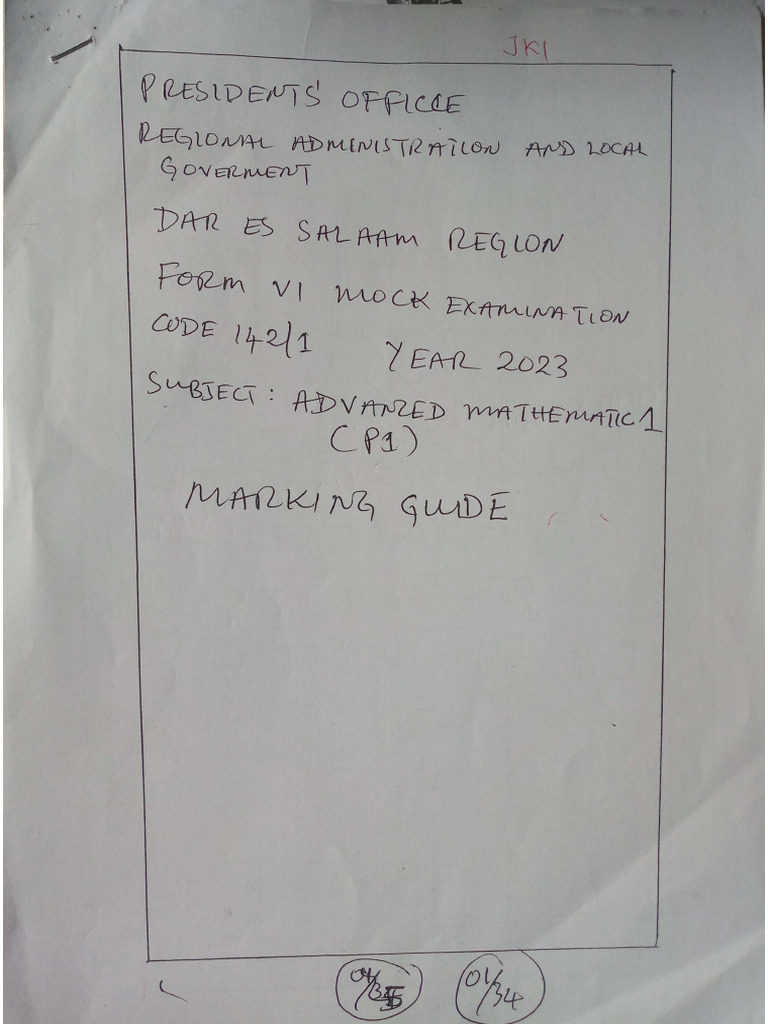 JK1
PRESIDENTS' OFFICCE
REGIONAL ADMINISTRATION AND LOCAL
GOVERMENT
DAR ES SALAAM REGION
FORM VI MOCK EXAMINATION
CODE 142/1 YEAR 2023
SUBJECT: ADVANCED MATHEMATIC 1
(P1)
MARKING GUIDE
01/34